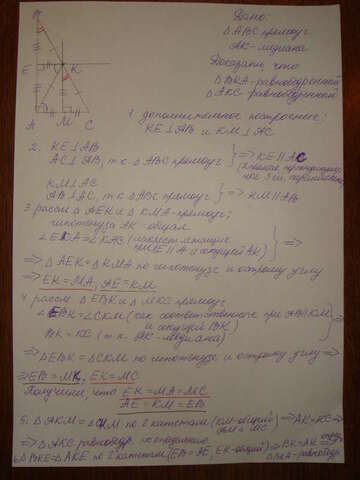 Дано:
△ABC прямоуг
AK-медиана
Доказать, что
△BKA-равнобедренный
△AKC-равнобедренный
B
E
K
A
M
C
1 дополнительное построение:
KE⊥AB и KM⊥AC
2. KE⊥AB
AC⊥AB, т.к. △ABC прямоуг
=> KE||AC
KM⊥AC
AB⊥AC, т.к. △ABC прямоуг
=> KM||AB
3 рассм △AEK и △KMA-прямоуг;
гипотенуза AK общая
∠EKA=∠KAC (накрест лежащие
и секущей AK)
=>
=> △AEK=△KMA по гипотенузе и острому углу
=> EK=MA, AE=KM
4 рассм △EBK и △MKC прямоуг
∠EBK=∠CKM (как соответственные при AB||KM
и секущей BK)
BK=KC (т.к. AK-медиана)
=> △EBK=△CKM по гипотенузе и острому углу =>
=> EB=MK, EK=MC
Получили, что EK=MA=MC
AE=KM=EB
5. △AKM=△CKM по 2 катетам (KM-общий
AM=MC) => AK=KC =>
=> △AKC равнобедр. по определению
6 △BKE=△AKE по 2 катетам (EB=AE, EK-общий) => BK=AK =>
△BKA-равнобедр.